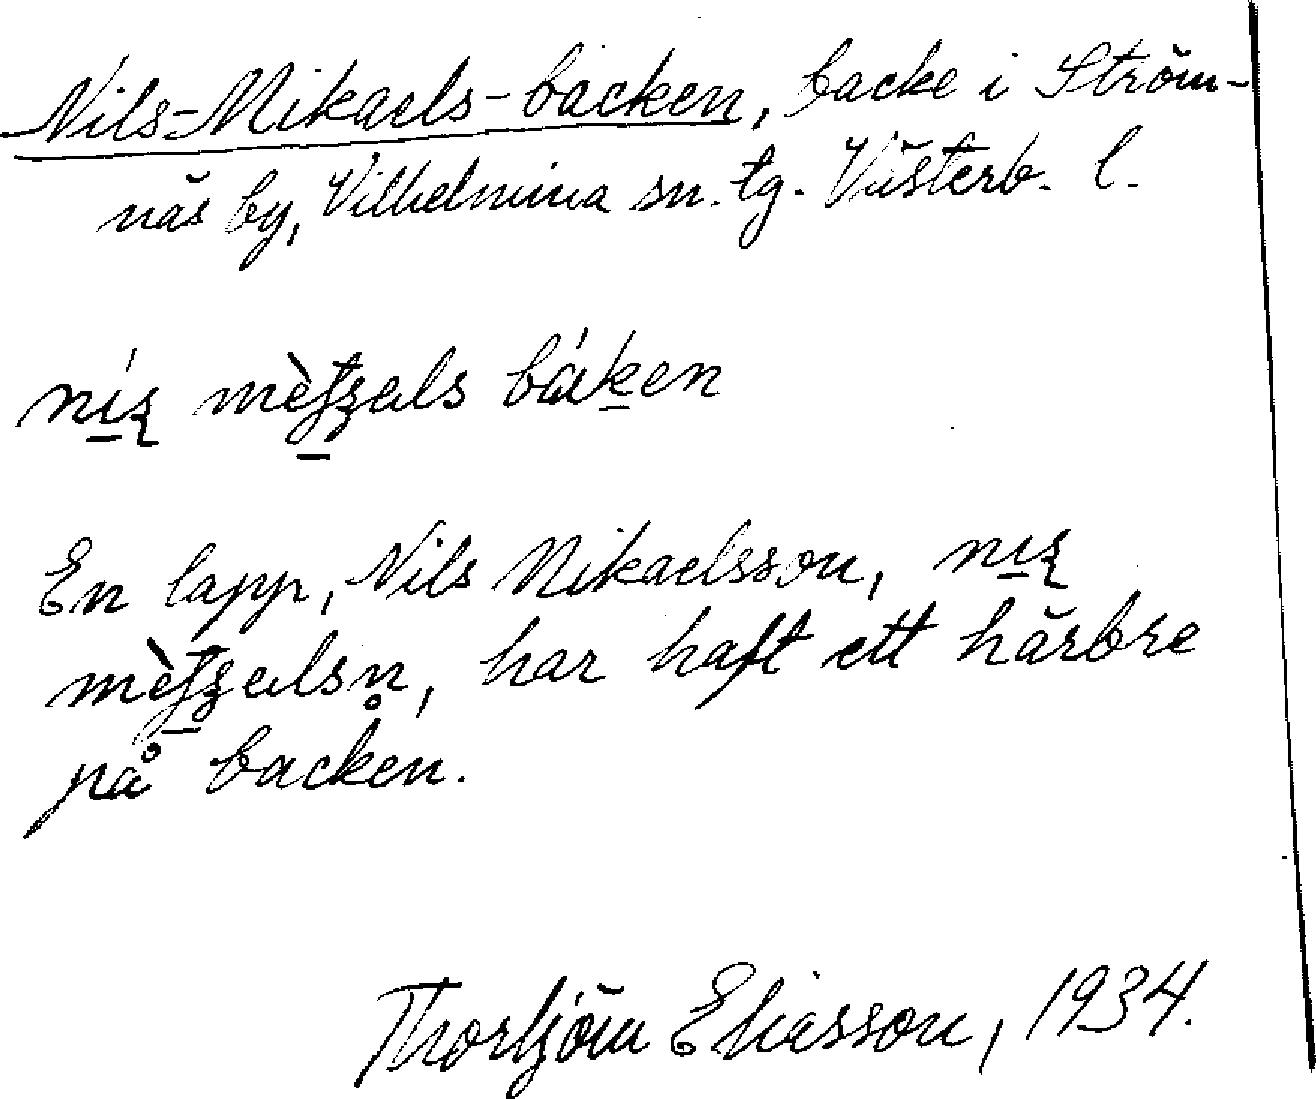 Nils-Mikaels-backen, backe i Ström-
näs by, Vilhelmina sn. tg. Västerb. l.
báken
En lapp, Nils Mikaelsson,
har haft ett härbre
på backen.
Thorbjörn Eliasson, 1934.